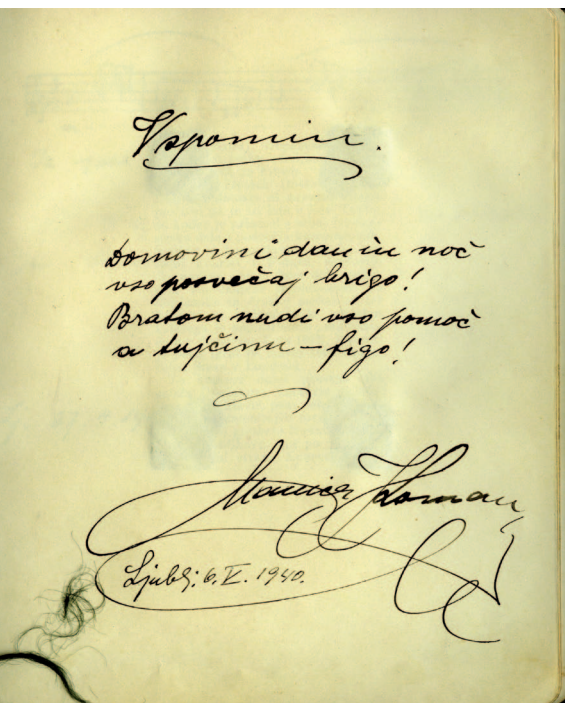 Vspomin.
Domovini dan in noč
vso posvečaj brigo!
Bratom nudi vso pomoč
a tujčinu – figo!
Manica Koman
Ljublj. 6. V. 1940.